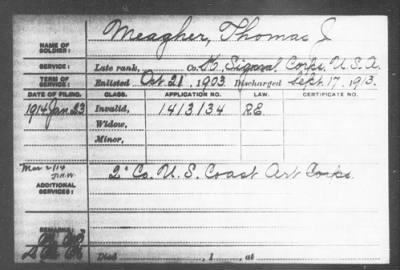 NAME OF SOLDIER: Meagher, Thomas J
SERVICE: Late rank, Co. K Signal Corps, U.S.A.
TERM OF SERVICE: Enlisted Oct 21, 1903 Discharged Sept. 17, 1913.
DATE OF FILING. CLASS. APPLICATION NO. LAW. CERTIFICATE NO.
1914 Jan 23 Invalid, 1413134 RE
Widow,
Minor,
ADDITIONAL SERVICES: 2" Co. U.S. Coast Art Corps.
REMARKS:
Died , 1 , at